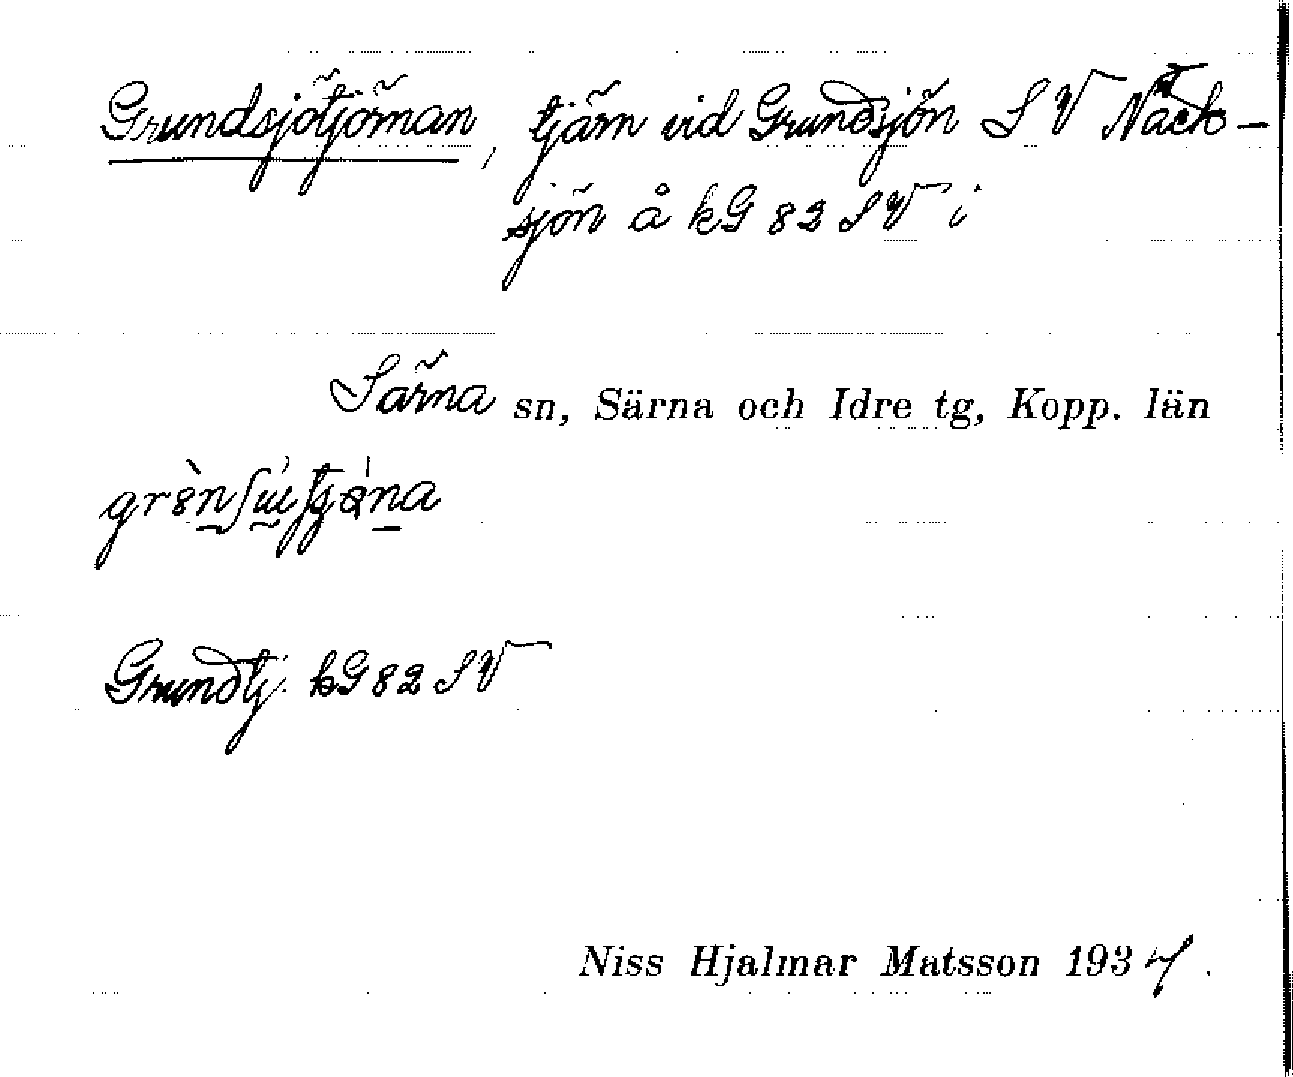 Grundsjötjörnan, tjärn vid Grundsjön S V Näck-
sjön å kG 82 SV i
Särna sn, Särna och Idre tg, Kopp. län
Grundtj. kG 82 SV
Niss Hjalmar Matsson 1937.